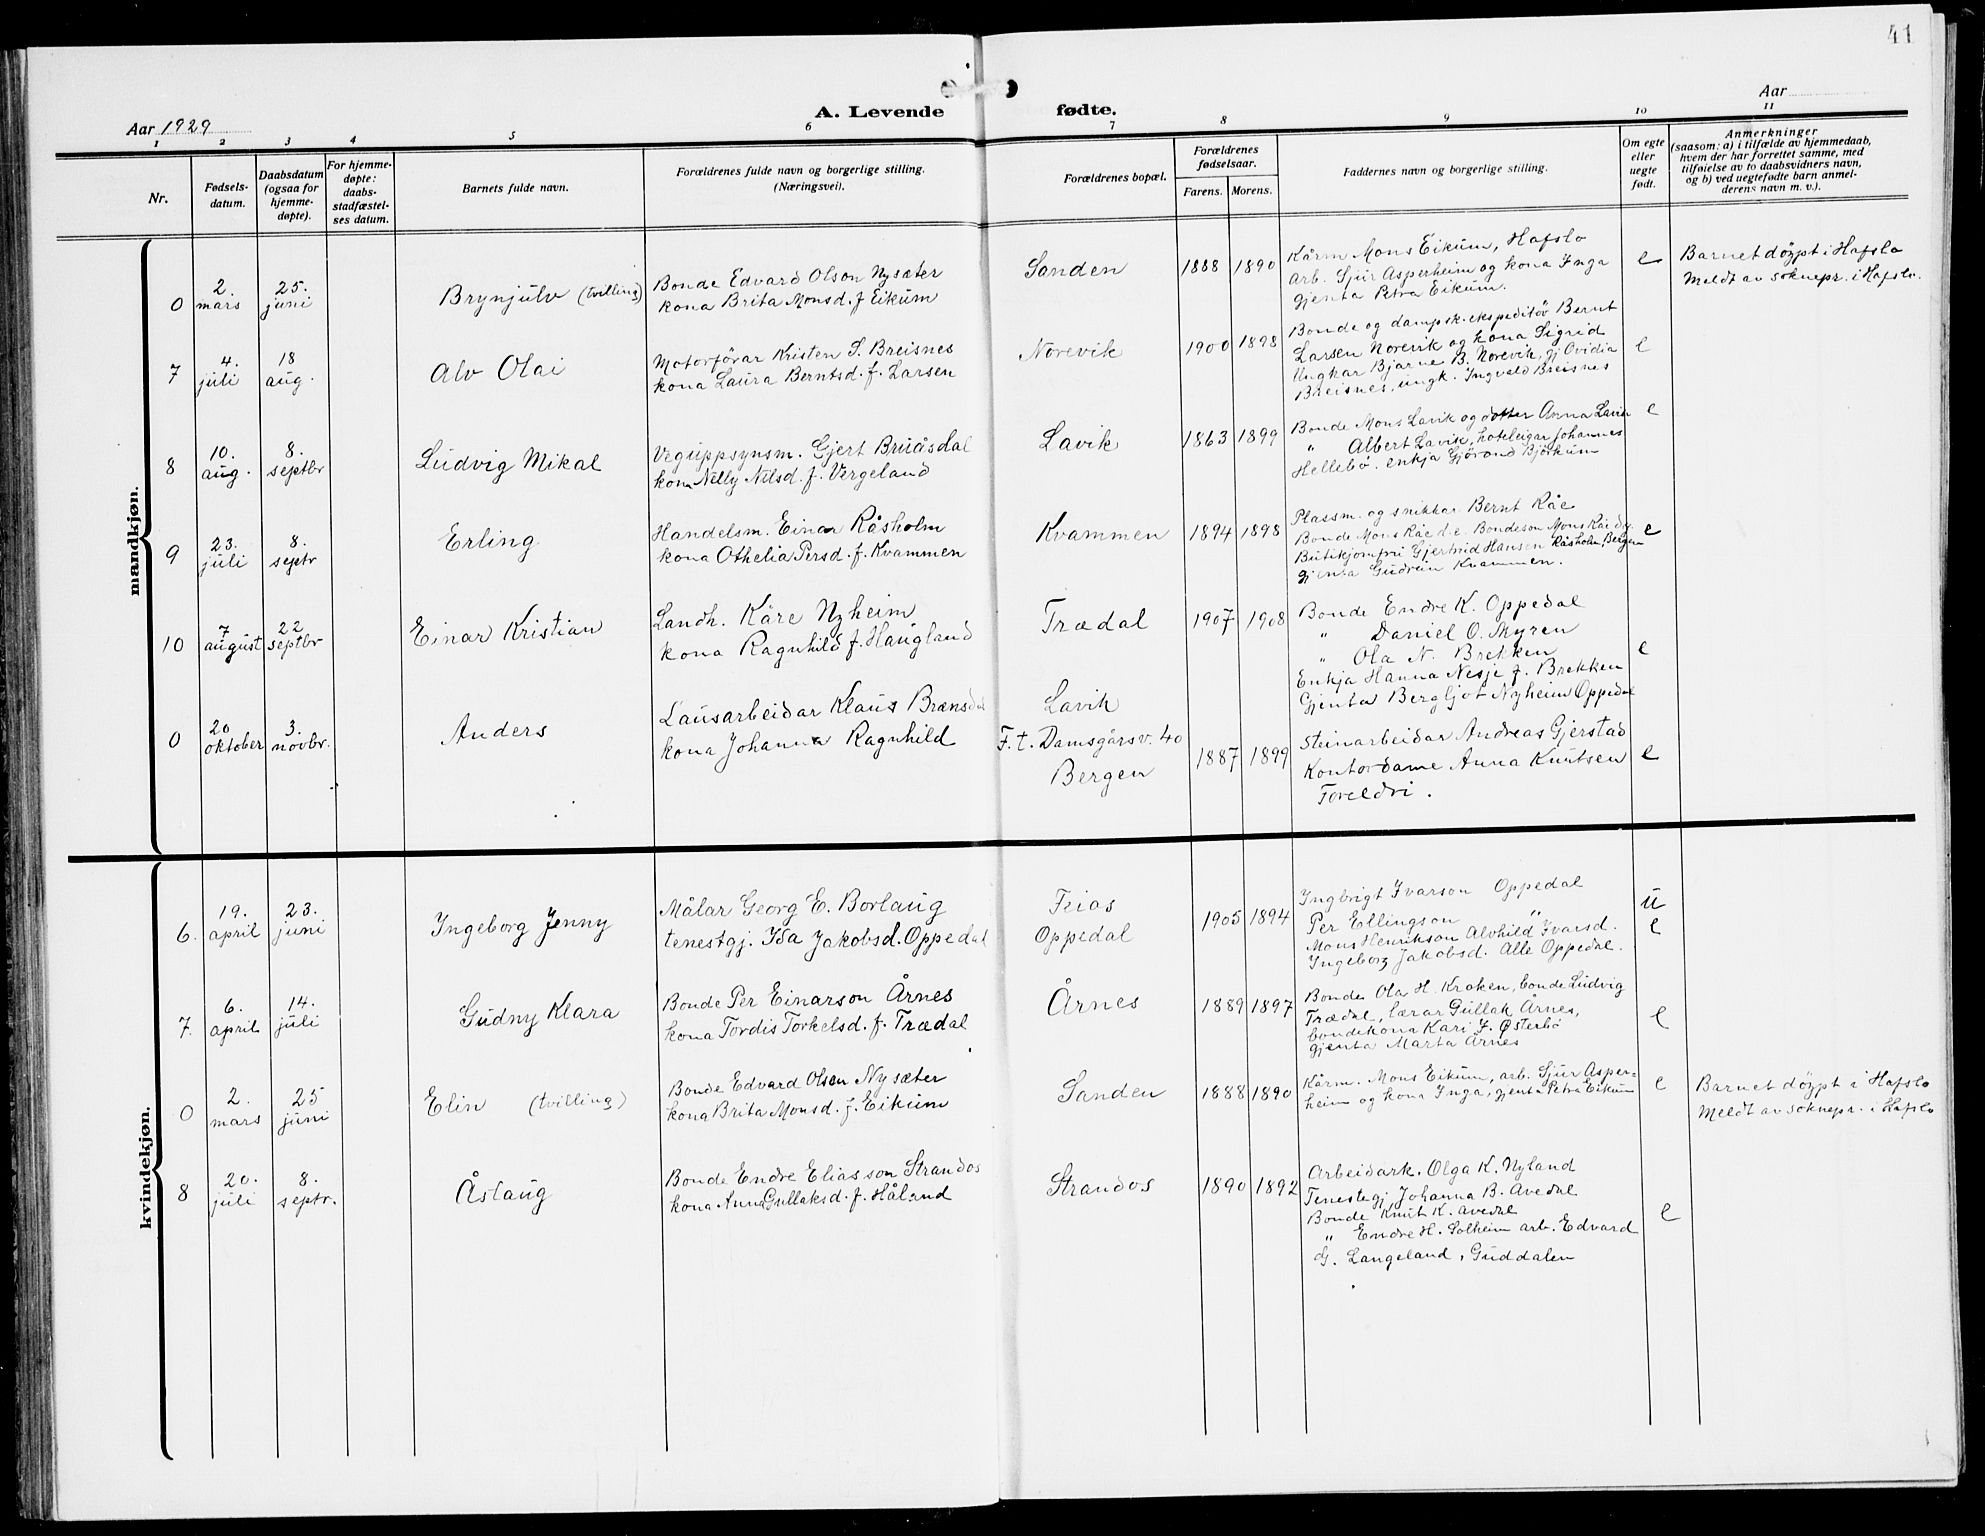 41
Aar 1929
A. Levende fødte.
Aar
1 2 3 4 5 6 7 8 9 10 11
Nr.
Fødsels-
datum.
Daabsdatum
(ogsaa for
hjemme-
døpte).
For hjemme-
døpte:
daabs-
stadfæstel-
ses datum.
Barnets fulde navn.
Forældrenes fulde navn og borgerlige stilling.
(Næringsvei).
Forældrenes bopæl.
Forældrenes
fødselsaar.
Farens. Morens.
Faddernes navn og borgerlige stilling.
Om egte
eller
uegte
født.
Anmerkninger
(saasom: a) i tilfælde av hjemmedaab,
hvem der har forrettet samme, med
tilføielse av to daabsvidners navn,
og b) ved uegtefødte barn anmel-
derens navn m. v.).
mandkjøn.
0
2.
mars
25.
juni
Brynjulv (tvilling)
Bonde Edvard Olson Nysæter
kona Brita Monsd. f. Eikum
Sanden
1888 1890
Kårm Mons Eikum, Hafslo
arb. Sjur Asperheim og kona Inga
gjenta Petra Eikum.
e
Barnet døypt i Hafslo
Meldt av soknepr. i Hafslo.
7
4.
juli
18
aug.
Alv Olai
Motorførar Kristen S. Breisnes
kona Laura Berntsd. f. Larsen
Norevik
1900 1898
Bonde og dampsk.ekspeditør Bernt
Larsen Norevik og kona Sigrid
Ungkar Bjarne B. Norevik, gj Ovidia
Breisnes, ungk. Ingvald Breisnes
e
8
10.
aug.
8.
septbr
Ludvig Mikal
Veguppsynsm. Gjert Bruåsdal
kona Nelly Nilsd. f. Vergeland
Lavik
1863 1899
Bonde Mons Lavik og dotter Anna Lavik
" Albert Lavik, hoteleigar Johannes
Hellebø. enkja Gjørond Bjørkum
e
9
23.
juli
8.
septr
Erling
Handelsm. Einar Råsholm
kona Othelia Persd. f. Kvammen
Kvammen
1894 1898
Plassm. og snikkar Bernt Råe
Bonde Mons Råe d.e. Bondeson Mons Råe d.y.
Butikjomfru Gjertrud Hansen Råsholm, Bergen
gjenta Gudrun Kvammen.
e
10
7
august
22
septbr
Einar Kristian
Landh. Kåre Nyheim
kona Ragnhild f. Haugland
Trædal
1907 1908
Bonde Endre K. Oppedal
" Daniel O. Myren
" Ola N. Brekken
Enkja Hanna Nesje f. Brekken
Gjenta Bergljot Nyheim Oppedal
e
0
20
oktober
3.
novbr.
Anders
Lausarbeidar Klaus Brænsdal
kona Johanna Ragnhild
Lavik
F. t. Damsgårsv. 40
Bergen
1887 1899
Steinarbeidar Andreas Gjerstad
Kontordame Anna Knutsen
Foreldri.
e
kvindekjøn.
6.
19.
april
23.
juni
Ingeborg Jenny
Målar Georg E. Borlaug
tenestgj. Ida Jakobsd. Oppedal
Feios
Oppedal
1905 1894
Ingbrigt Ivarson Oppedal
Per Ellingson "
Mons Henrikson Alvhild Ivarsd.
Ingeborg Jakobsd. Alle Oppedal.
u
e
7.
6.
april
14.
juli
Gudny Klara
Bonde Per Einarson Årnes
kona Tordis Torkelsd. f. Trædal
Årnes
1889 1897
Bonde Ola H. Kroken, bonde Ludvig
Trædal, lærar Gullak Årnes,
bondekona Kari J. Østerbø
gjenta Marta Årnes
e
0
2.
mars
25
juni
Elin (tvilling)
Bonde Edvard Olsen Nysæter
kona Brita Monsd. f. Eikum
Sanden
1888 1890
Kårm. Mons Eikum, arb. Sjur Asper=
heim og kona Inga, gjenta Petra Eikum
e
Barnet døypt i Hafslo
Meldt av soknepr. i Hafslo
8
20.
juli
8.
septr.
Åslaug
Bonde Endre Eliasson Strandos
kona Anna Gullaksd. f. Håland
Strandos
1890 1892
Arbeidark. Olga K. Nyland
Tenestegj Johanna B. Avedal
Bonde Knut K. Avedal
" Endre H. Solheim arb. Edvard
G. Langeland, Guddalen
e